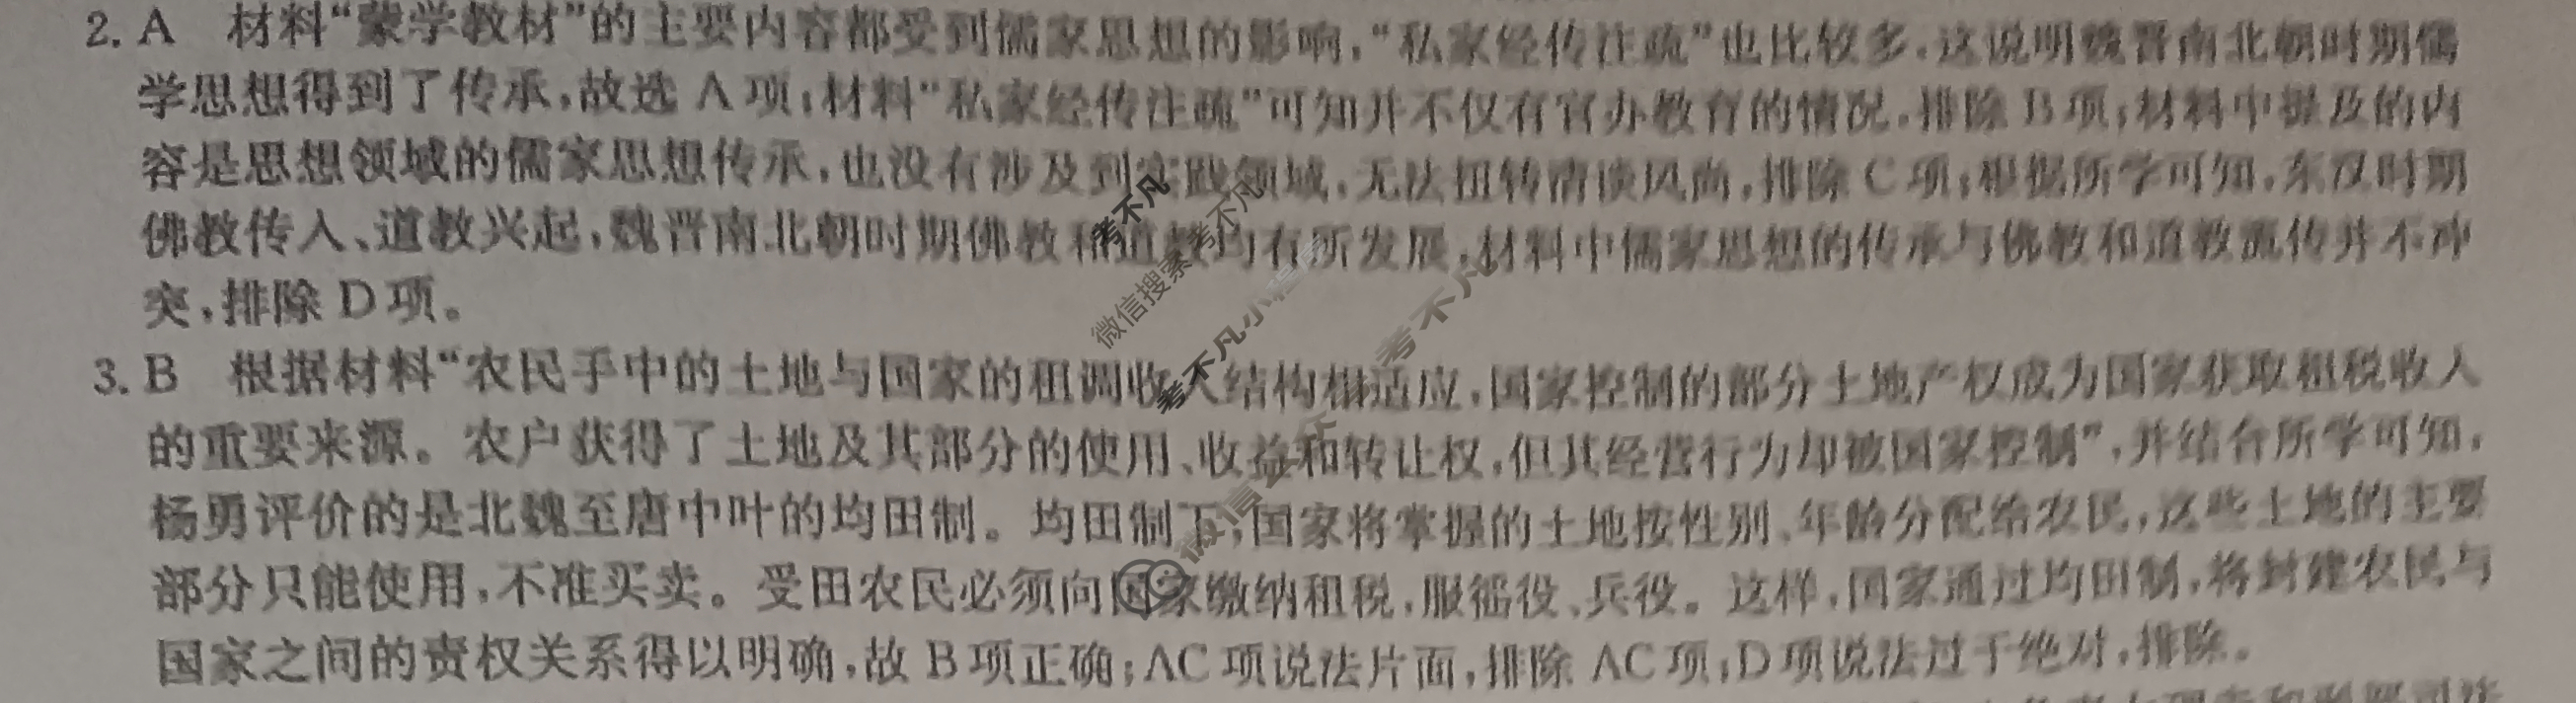 2. A 材料“蒙学教材”的主要内容都受到儒家思想的影响,“私家经传注疏”也比较多,这说明魏晋南北朝时期儒
学思想得到了传承,故选 A 项;材料“私家经传注疏”可知并不仅有官办教育的情况,排除 B 项;材料中提及的内
容是思想领域的儒家思想传承,也没有涉及到实践领域,无法扭转清谈风尚,排除 C 项;根据所学可知,东汉时期
佛教传入、道教兴起,魏晋南北朝时期佛教和道教均有所发展,材料中儒家思想的传承与佛教和道教流传并不冲
突,排除 D 项。
3. B 根据材料“农民手中的土地与国家的租调收入结构相适应,国家控制的部分土地产权成为国家获取租税收入
的重要来源。农户获得了土地及其部分的使用、收益和转让权,但其经营行为却被国家控制”,并结合所学可知,
杨勇评价的是北魏至唐中叶的均田制。均田制下,国家将掌握的土地按性别、年龄分配给农民,这些土地的主要
部分只能使用,不准买卖。受田农民必须向国家缴纳租税,服徭役、兵役。这样,国家通过均田制,将封建农民与
国家之间的责权关系得以明确,故 B 项正确;AC 项说法片面,排除 AC 项;D 项说法过于绝对,排除。
考不凡
考不凡
微信搜索
考不凡小程序
考不凡
微信公众